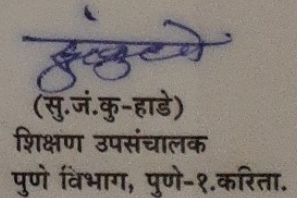 (सु.जं.कु-हाडे)
शिक्षण उपसंचालक
पुणे विभाग, पुणे-१.करिता.